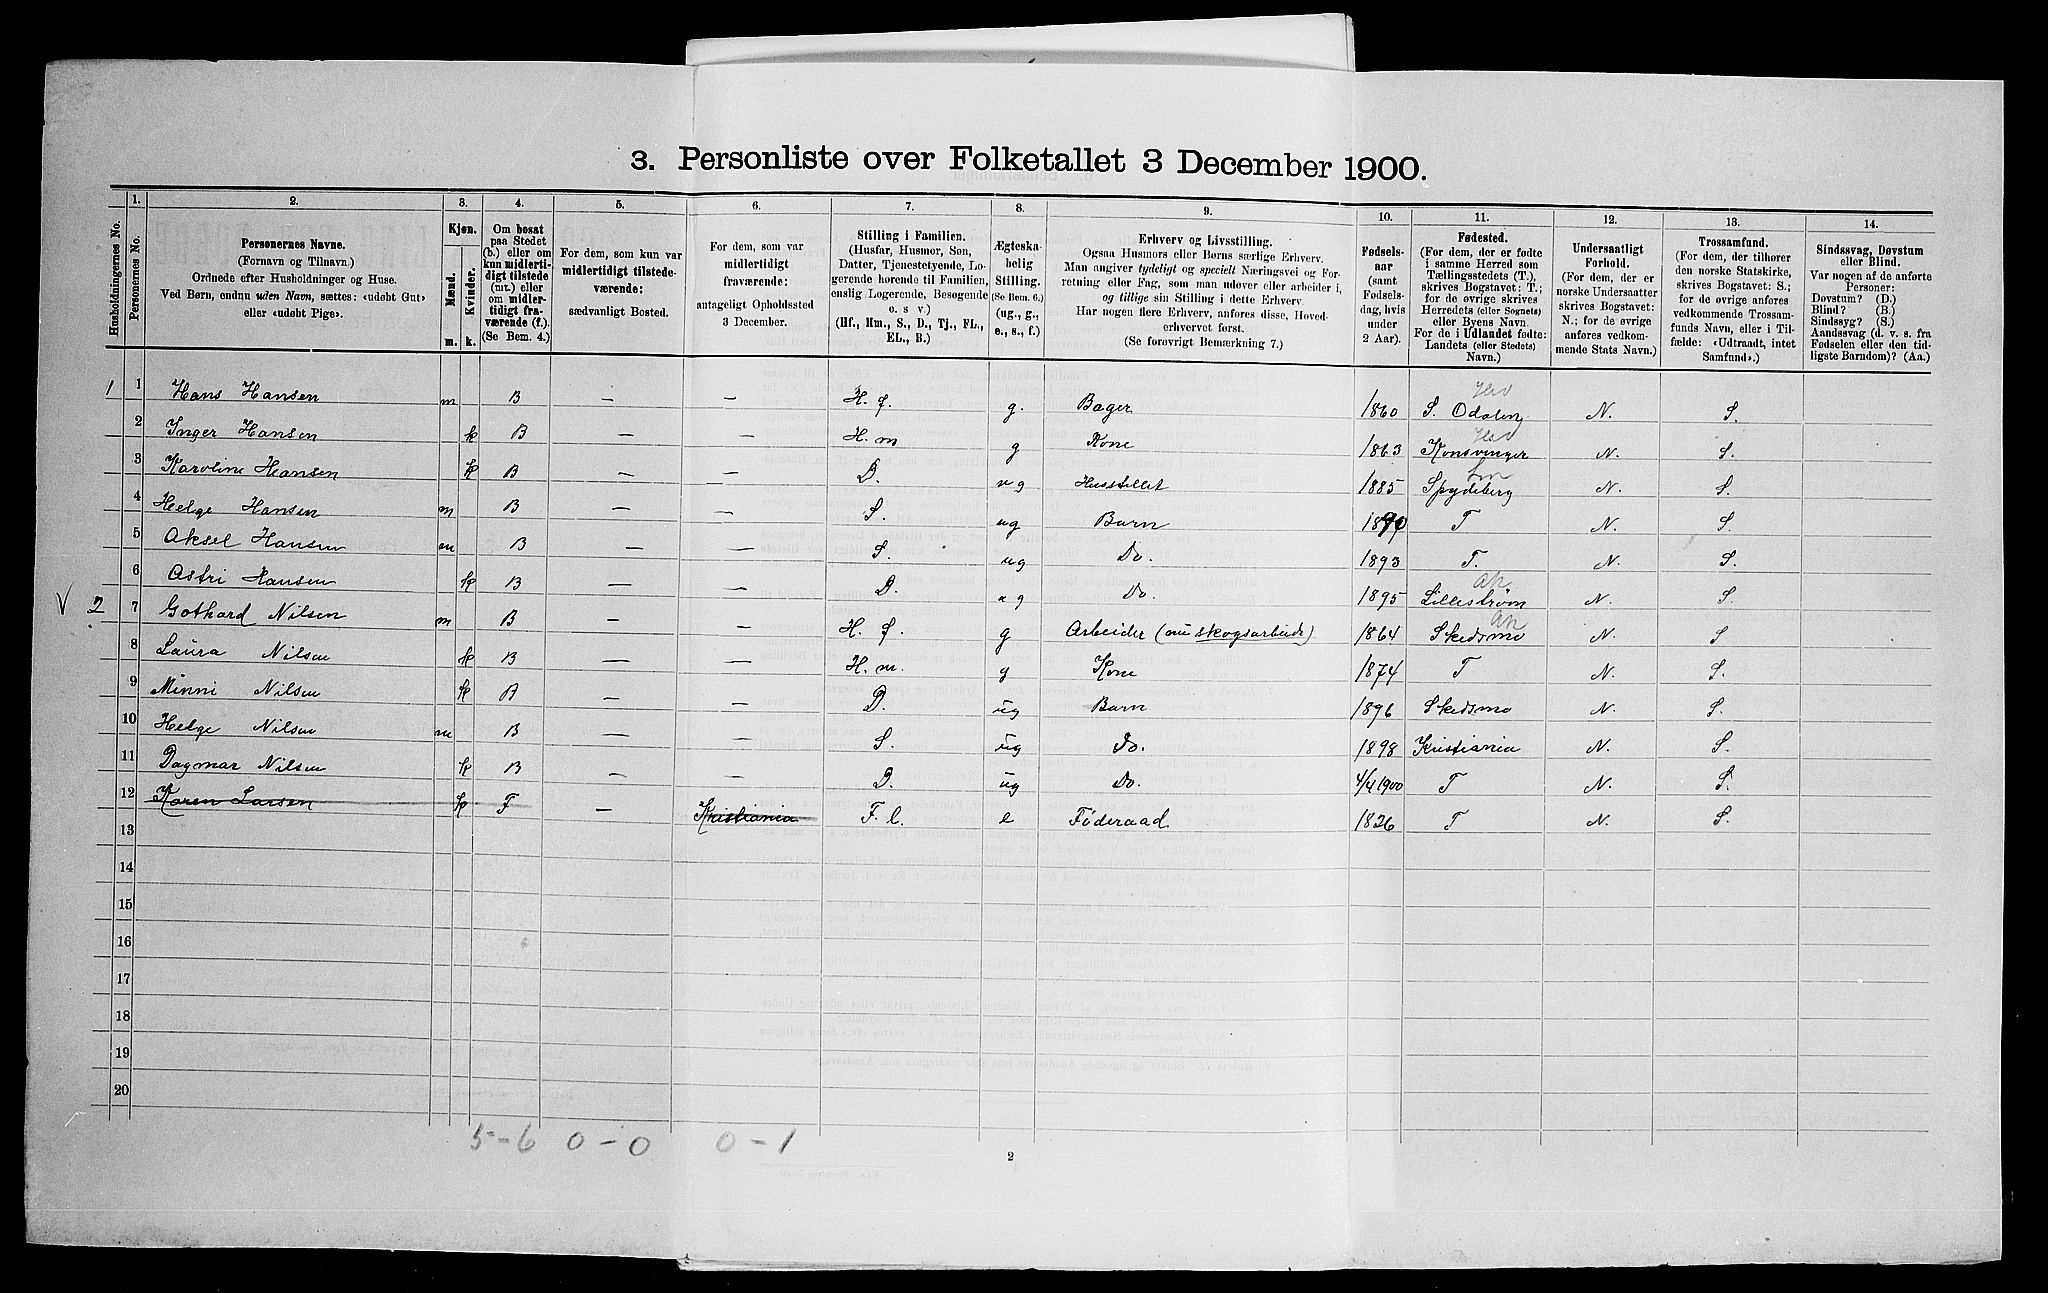 3. Personliste over Folketallet 3 December 1900.
Husholdningernes No.
1. Personernes No.
2. Personernes Navne. (Fornavn og Tilnavn.) Ordnede efter Husholdninger og Huse. Ved Børn, endnu uden Navn, sættes: «udøbt Gut» eller «udøbt Pige».
3. Kjøn. Mænd. m. Kvinder. k.
4. Om bosat paa Stedet (b.) eller om kun midlertidigt tilstede (mt.) eller om midlertidigt fraværende (f.). (Se Bem. 4.)
5. For dem, som kun var midlertidigt tilstedeværende: sædvanligt Bosted.
6. For dem, som var midlertidigt fraværende: antageligt Opholdssted 3 December.
7. Stilling i Familien. (Husfar, Husmor, Søn, Datter, Tjenestetyende, Logerende hørende til Familien, enslig Logerende, Besøgende o. s. v.) (Hf., Hm., S., D., Tj., FL., EL., B.)
8. Ægteskabelig Stilling. (Se Bem. 6.) (ug., g., e., s., f.)
9. Erhverv og Livsstilling. Ogsaa Husmors eller Børns særlige Erhverv. Man angiver tydeligt og specielt Næringsvei og Forretning eller Fag, som man udøver eller arbeider i, og tillige sin Stilling i dette Erhverv. Har nogen flere Erhverv, anføres disse, Hovederhvervet først. (Se forøvrigt Bemærkning 7.)
10. Fødselsaar (samt Fødselsdag, hvis under 2 Aar).
11. Fødested. (For dem, der er fødte i samme Herred som Tællingsstedets (T.), skrives Bogstavet: T.; for de øvrige skrives Herredets (eller Sognets) eller Byens Navn. For de i Udlandet fødte: Landets (eller Stedets) Navn.)
12. Undersaatligt Forhold. (For dem, der er norske Undersaatter skrives Bogstavet: N.; for de øvrige anføres vedkommende Stats Navn.)
13. Trossamfund. (For dem, der tilhører den norske Statskirke, skrives Bogstavet: S.; for de øvrige anføres vedkommende Trossamfunds Navn, eller i Tilfælde: «Udtraadt, intet Samfund».)
14. Sindssvag, Døvstum eller Blind. Var nogen af de anførte Personer: Døvstum? (D.) Blind? (B.) Sindssyg? (S.) Aandssvag (d. v. s. fra Fødselen eller den tidligste Barndom)? (Aa.)
1 1 Hans Hansen m B — — H. f. g. Bager 1860 S. Odalen Hed N. S.
2 Inger Hansen k B — — H. m g Kone 1863 Konsvinger Hed N. S.
3 Karoline Hansen k B — — D. ug Husstellet 1885 Spydeberg Sm N. S.
4 Helge Hansen m B — — S. ug Barn 1890 T N. S.
5 Aksel Hansen m B — — S. ug Do. 1893 T. N. S.
6 Astri Hansen k B — — D. ug Do. 1895 Lillestrøm Ak N. S.
V 2 7 Gothard Nilsen m B — — H. f. g Arbeider (nu skogsarbeide) 1864 Skedsmo Ak N. S
8 Laura Nilsen k B — — H. m. g Kone 1874 T N. S.
9 Minni Nilsen k B — — D. ug Barn 1896 Skedsmo N. S.
10 Helge Nilsen m B — — S. ug Do. 1898 Kristiania N. S.
11 Dagmar Nilsen k B — — D. ug Do. 4/4 1900 T N. S.
12 Karen Larsen k F — Kristiania F. l. e Föderaad 1826 T N. S.
13
14
15
16
17
18
19
20
5 – 6 0 – 0 0 – 1
2